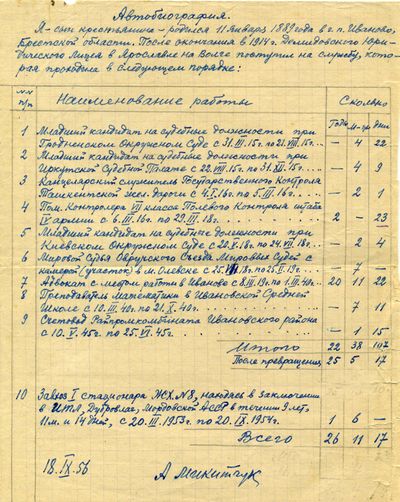 Автобиография.
Я – сын крестьянина – родился 11 Января 1889 года в г.п. Иваново,
Брестской области. После окончания в 1914 г. Демидовского Юри-
дического Лицея в Ярославле на Волге поступил на службу, кото-
рая проходила в следующем порядке:
№№ п/п Наименование работы Сколько
Годы М-цы дни
1 Младший кандидат на судебные должности при
Гродненском Окружном Суде с 31.III.15г. по 21.VIII.15г... – 4 22
2 Младший кандидат на судебные должности при
Иркутской Судебной Плате с 22.VIII.15г. по 31.XII.15г... – 4 9
3 Канцелярский служитель Государственного Контроля
Ташкентской жел. дороги с 4.I.16г. по 5.III.16г... – 2 1
4 Пом. Контролера VII класса Полевого Контроля штаба
IV армии с 6.III.16г. по 29.III.18г... 2 – 23
5 Младший кандидат на судебные должности при
Киевском Окружном Суде с 20.V.18г. по 24.VII.18г... – 2 4
6 Мировой Судья Овручского Съезда Мировых Судей с
камерой (участок) в м. Олевске с 25.VII.18г. по 25.II.19г... – 7 –
7 Адвокат с местом работы в Иваново с 8.III.19г. по 1.III.40г... 20 11 22
8 Преподаватель Математики в Ивановской Средней
Школе с 10.III.40г. по 21.X.40г... – 7 11
9 Счетовод Райпромкомбината Ивановского района
с 10.V.45г. по 25.VI.45г... – 1 15
Итого 22 38 107
После превращения 25 5 17
10 Завхоз I стационара ЖХ. №8, находясь в заключении
в ИТЛ, Дубровлаг, Мордовской АССР в течении 9 лет,
11 м. и 14 дней, с 20.III.1953г. по 20.IX.1954г. 1 6 –
Всего 26 11 17
18.IX.56 А Микитчук